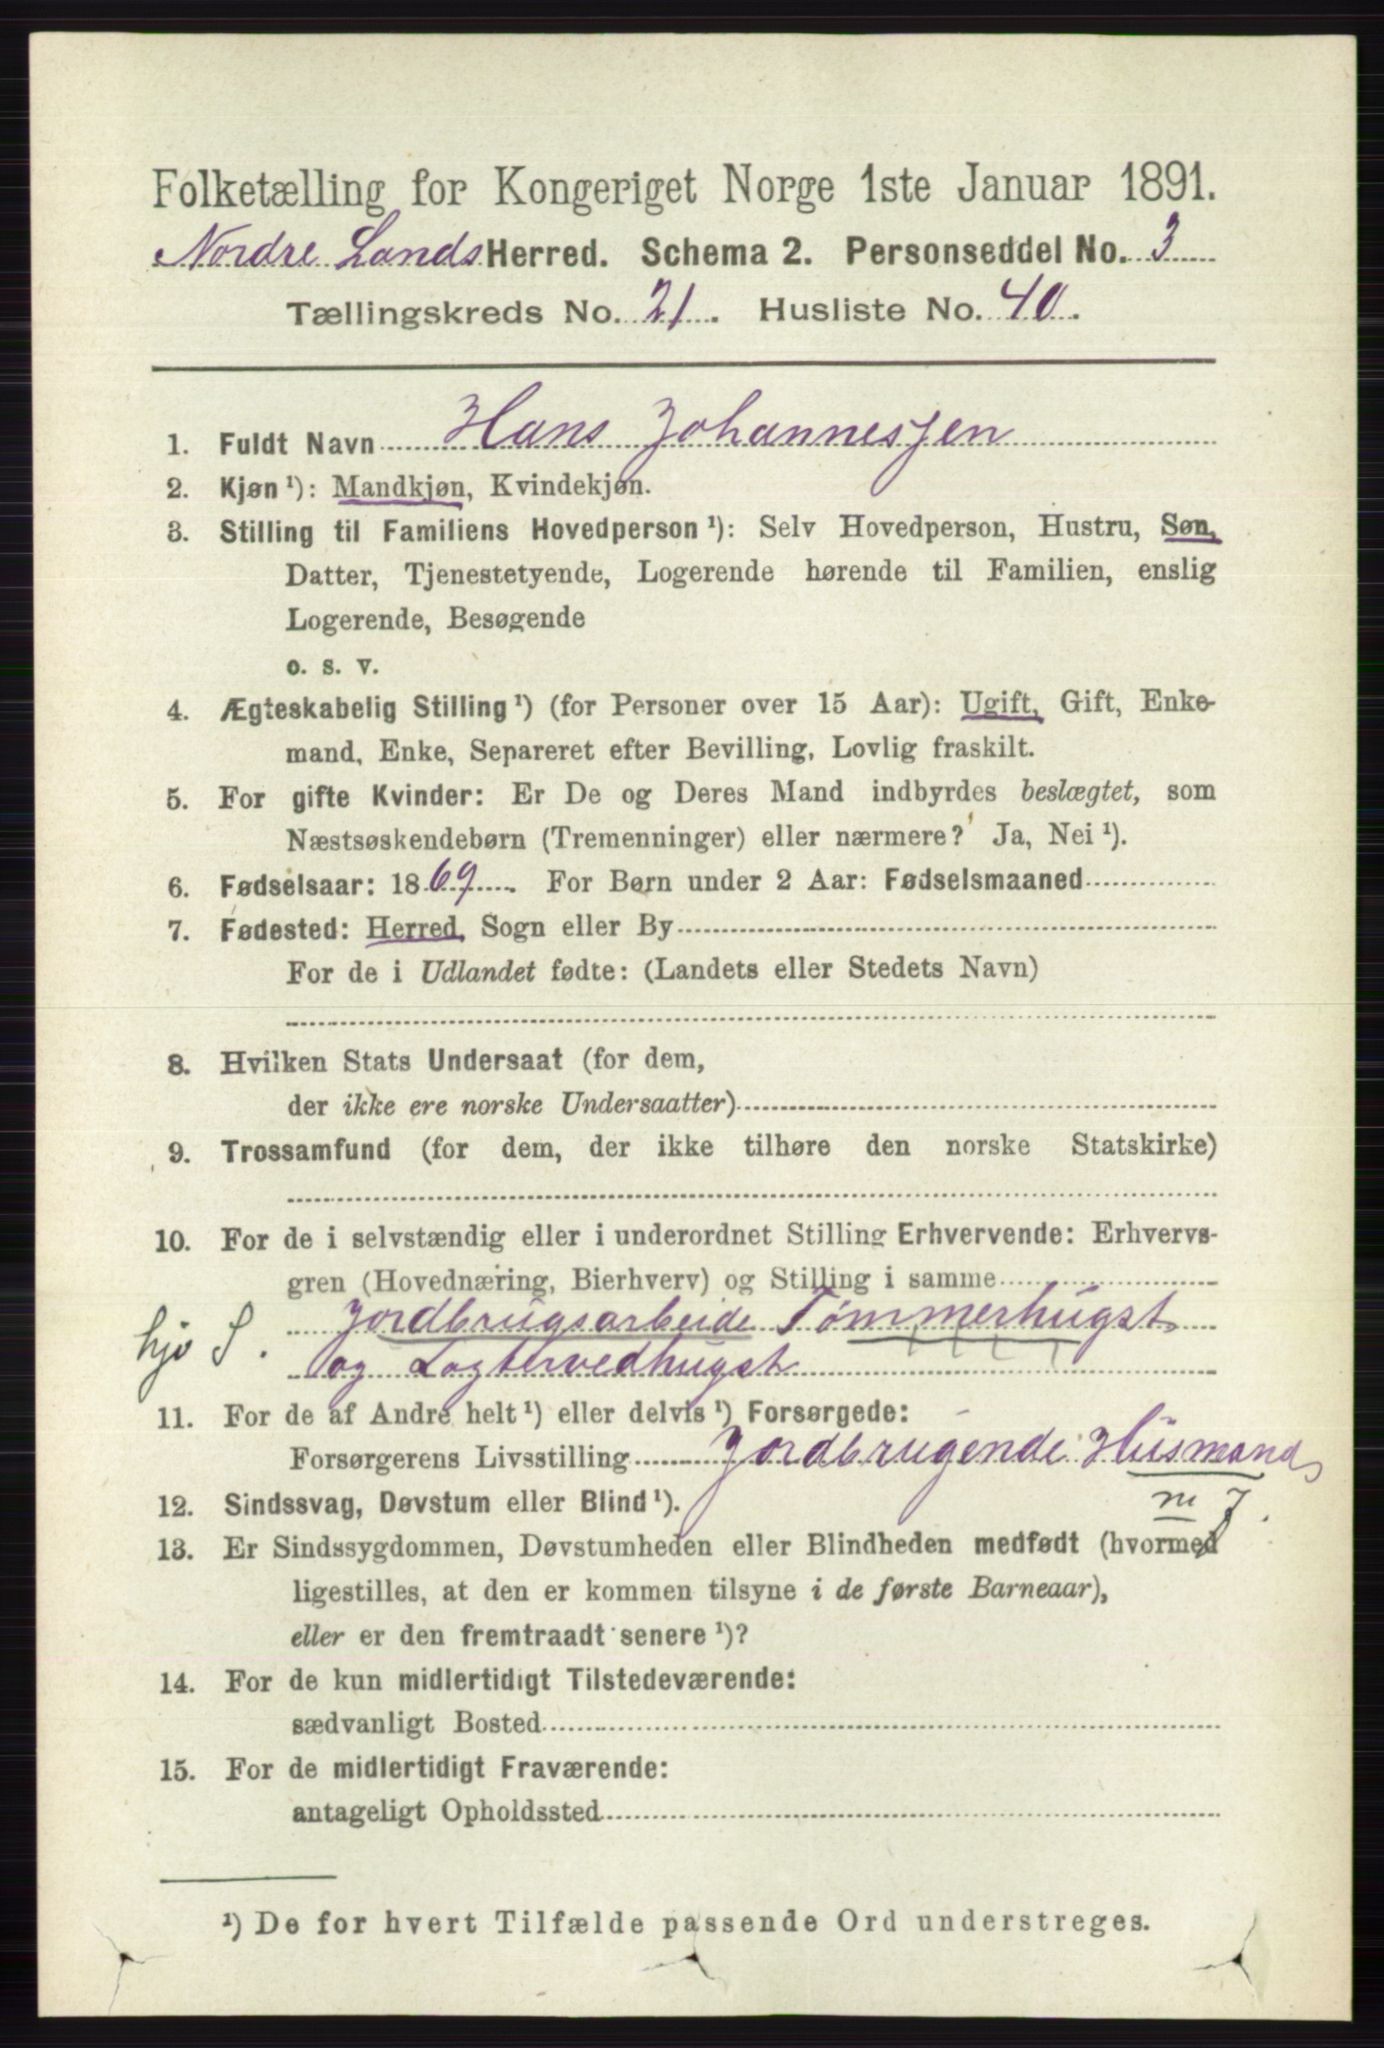 Folketælling for Kongeriget Norge 1ste Januar 1891.
Nordre Lands Herred. Schema 2. Personseddel No. 3
Tællingskreds No. 21. Husliste No. 40.
1. Fuldt Navn Hans Johannessen
2. Kjøn ¹): Mandkjøn, Kvindekjøn.
3. Stilling til Familiens Hovedperson ¹): Selv Hovedperson, Hustru, Søn,
Datter, Tjenestetyende, Logerende hørende til Familien, enslig
Logerende, Besøgende
o. s. v.
4. Ægteskabelig Stilling ¹) (for Personer over 15 Aar): Ugift, Gift, Enke-
mand, Enke, Separeret efter Bevilling, Lovlig fraskilt.
5. For gifte Kvinder: Er De og Deres Mand indbyrdes beslægtet, som
Næstsøskendebørn (Tremenninger) eller nærmere? Ja, Nei ¹).
6. Fødselsaar: 1869. For Børn under 2 Aar: Fødselsmaaned
7. Fødested: Herred, Sogn eller By
For de i Udlandet fødte: (Landets eller Stedets Navn)
8. Hvilken Stats Undersaat (for dem,
der ikke ere norske Undersaatter)
9. Trossamfund (for dem, der ikke tilhøre den norske Statskirke)
10. For de i selvstændig eller i underordnet Stilling Erhvervende: Erhvervs-
gren (Hovednæring, Bierhverv) og Stilling i samme
Jordbrugsarbeide Tømmerhugst
hjo S. og Løgtervedhugst
11. For de af Andre helt ¹) eller delvis ¹) Forsørgede:
Forsørgerens Livsstilling Jordbrugende Husmand
m J.
12. Sindssvag, Døvstum eller Blind ¹).
13. Er Sindssygdommen, Døvstumheden eller Blindheden medfødt (hvormed
ligestilles, at den er kommen tilsyne i de første Barneaar),
eller er den fremtraadt senere ¹)?
14. For de kun midlertidigt Tilstedeværende:
sædvanligt Bosted
15. For de midlertidigt Fraværende:
antageligt Opholdssted
¹) De for hvert Tilfælde passende Ord understreges.